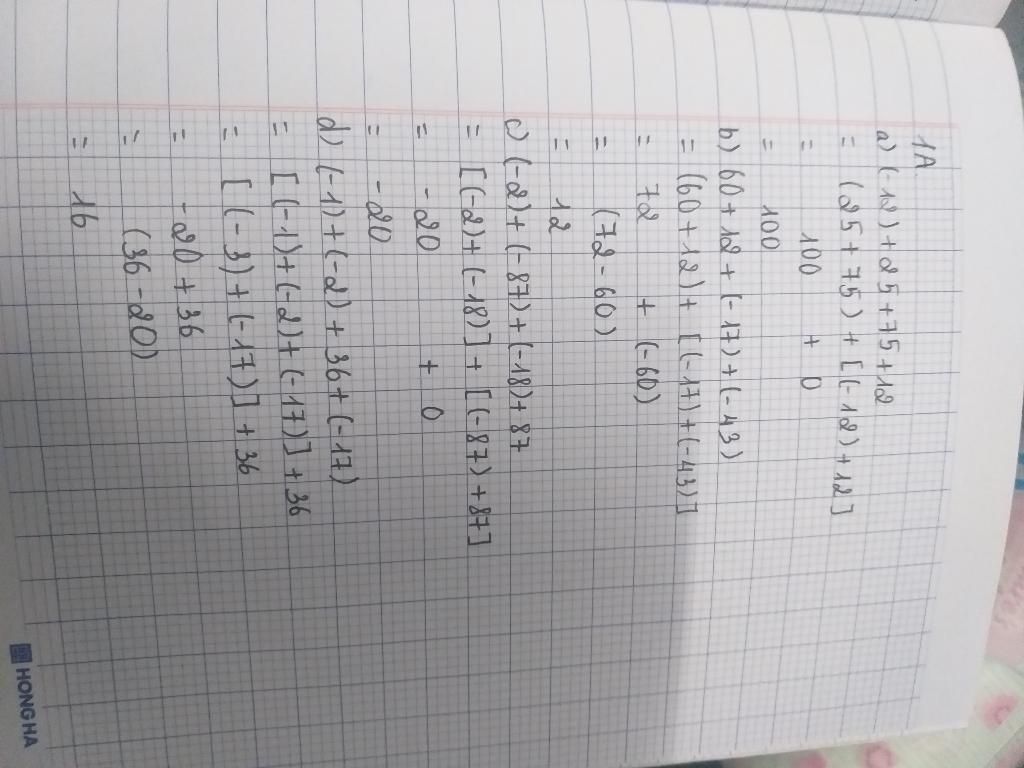 1A
a) (-12) + 25 + 75 + 12
= (25 + 75) + [(-12) + 12]
= 100 + 0
= 100
b) 60 + 12 + (-17) + (-43)
= (60 + 12) + [(-17) + (-43)]
= 72 + (-60)
= (72 - 60)
= 12
c) (-2) + (-87) + (-18) + 87
= [(-2) + (-18)] + [(-87) + 87]
= -20 + 0
= -20
d) (-1) + (-2) + 36 + (-17)
= [(-1) + (-2) + (-17)] + 36
= [(-3) + (-17)] + 36
= -20 + 36
= (36 - 20)
= 16
HONG HA